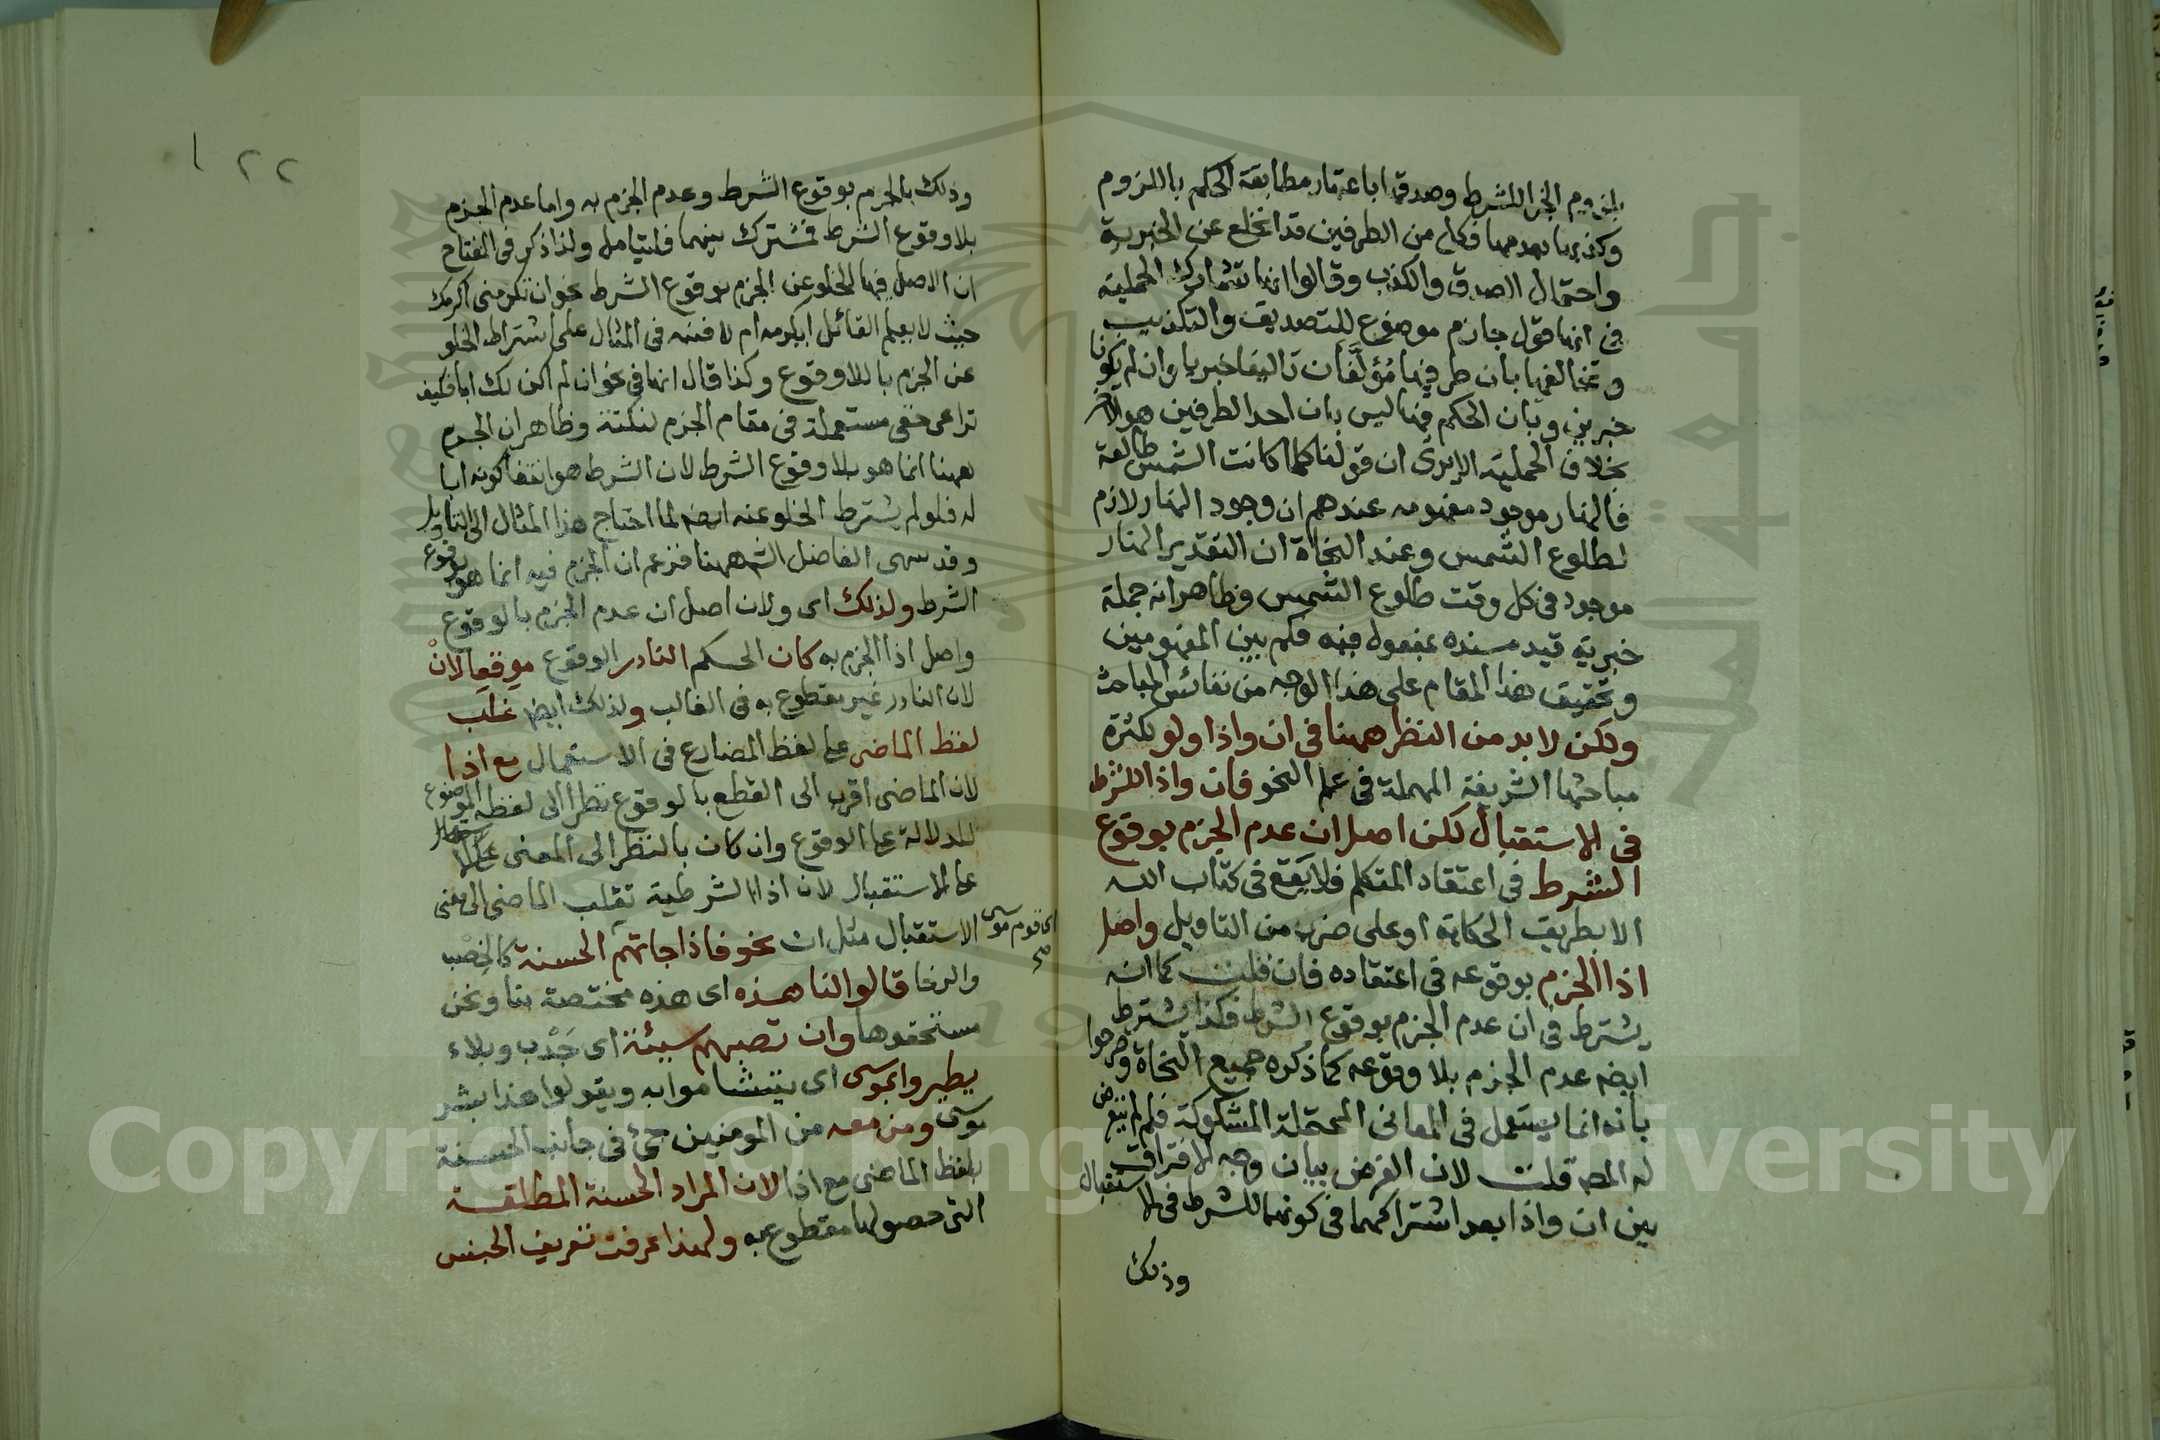 بلزوم الجزا للشرط وصدقها باعتبار مطابقة الحكم باللزوم
وكذبها بعدمها فكل من الطرفين قد انخلع عن الخبرية
واحتمال الصدق والكذب وقالوا انها تشارك الحملية
في انها قول جازم موضوع للتصديق والتكذيب
وتخالفها بان طرفيها مؤلفان تاليفا خبريا وان لم يكونا
خبرين وبان الحكم فيها ليس بان احد الطرفين هو الاخر
بخلاف الحملية الا يرى ان قولنا كلما كانت الشمس طالعة
فالنهار موجود مفهومه عندهم ان وجود النهار لازم
لطلوع الشمس وعند النحاة ان التقدير النهار
موجود في كل وقت طلوع الشمس وظاهر انه جملة
خبرية قيد مسنده بمفعول فيه فكم بين المفهومين
وتحقيق هذا المقام على هذا الوجه من نفائس المباحث
ولكن لا بد من النظر ههنا في ان واذا ولو لكثرة
مباحثها الشريفة المهملة في علم النحو فان واذا للشرط
في الاستقبال لكن اصل ان عدم الجزم بوقوع
الشرط في اعتقاد المتكلم فلا يقع في كتاب الله
الا بطريق الحكاية او على ضرب من التاويل واصل
اذا الجزم بوقوعه في اعتقاده فان قلت كما انه
يشترط في ان عدم الجزم بوقوع الشرط فكذا يشترط
ايضه عدم الجزم بلا وقوعه كما ذكره جميع النحاة وصرحوا
بانه انما يستعمل في المعاني المحتملة المشكوكة فلم لم يتعرض
له المصـ قلت لان الغرض بيان وجه الافتراق
بين ان واذا بعد اشتراكهما في كونهما للشرط في الاستقبال
وذلك
١٢٢
وذلك بالجزم بوقوع الشرط وعدم الجزم به واما عدم الجزم
بلا وقوع الشرط فمشترك بينهما فليتامل ولذا ذكر في المفتاح
ان الاصل فيها الخلو عن الجزم بوقوع الشرط نحو ان تكرمني اكرمك
حيث لا يعلم القائل ايكرمه ام لا فنبه في المثال على اشتراط الخلو
عن الجزم باللاوقوع وكذا قال انها في نحو ان لم اكن لك ابا فكيف
تراعى حقي مستعملة في مقام الجزم لنكتة وظاهر ان الجزم
ههنا انما هو بلا وقوع الشرط لان الشرط هو انتفا كونه ابا
له فلو لم يشترط الخلو عنه ايضه لما احتاج هذا المثال الى التاويل
وقد سهى الفاضل الشـ ههنا فزعم ان الجزم فيه انما هو بوقوع
الشرط ولذلك اى ولان اصل ان عدم الجزم بالوقوع
واصل اذا الجزم به كان الحكم النادر الوقوع موقعا لان
لان النادر غير مقطوع به في الغالب ولذلك ايضه غلب
لفظ الماضى على لفظ المضارع في الاستعمال مع اذا
لان الماضى اقرب الى القطع بالوقوع نظرا الى لفظه الموضوع
للدلالة على الوقوع وان كان بالنظر الى المعنى
على الاستقبال لان اذا الشرطية تقلب الماضى الى معنى
الاستقبال مثل ان نحو فاذا جاتهم الحسنة كالخصب
اى قوم موسى
صح
والرخا قالوا لنا هذه اى هذه مختصة بنا ونحن
مستحقوها وان تصبهم سيئة اى جدب وبلاء
يطيروا بموسى اى يتشاموا به ويقولوا هذا بشر
موسى ومن معه من المومنين جئ في جانب الحسنة
بلفظ الماضى مع اذا لان المراد الحسنة المطلقة
التى حصولها مقطوع به ولهذا عرفت تعريف الجنس
Copyright © King Saud University
جامعة الملك سعود
1957